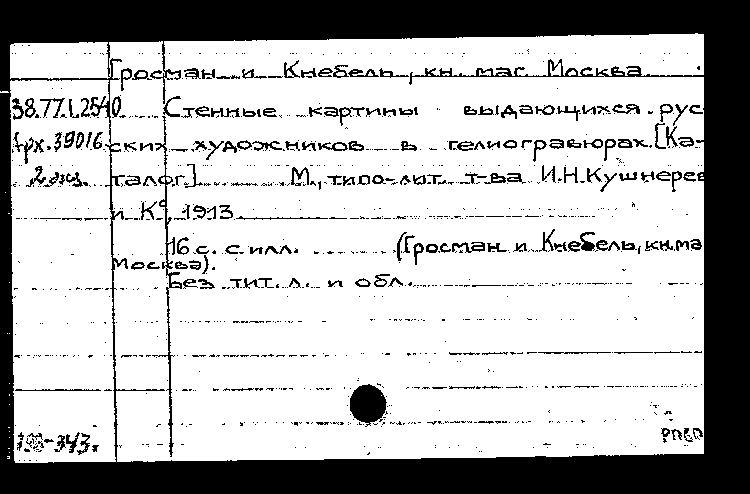 Гросман и Кнебель, кн. маг. Москва.
38.77.1.2540. Стенные картины выдающихся рус-
Арх.39016. ских художников в гелиогравюрах. [Ка-
2 экз. талог.] М., типо-лит. т-ва И.Н.Кушнерев
и К°, 1913.
16 с. с илл. (Гросман и Кнебель, кн.ма
Москва).
Без тит. л. и обл.
343.